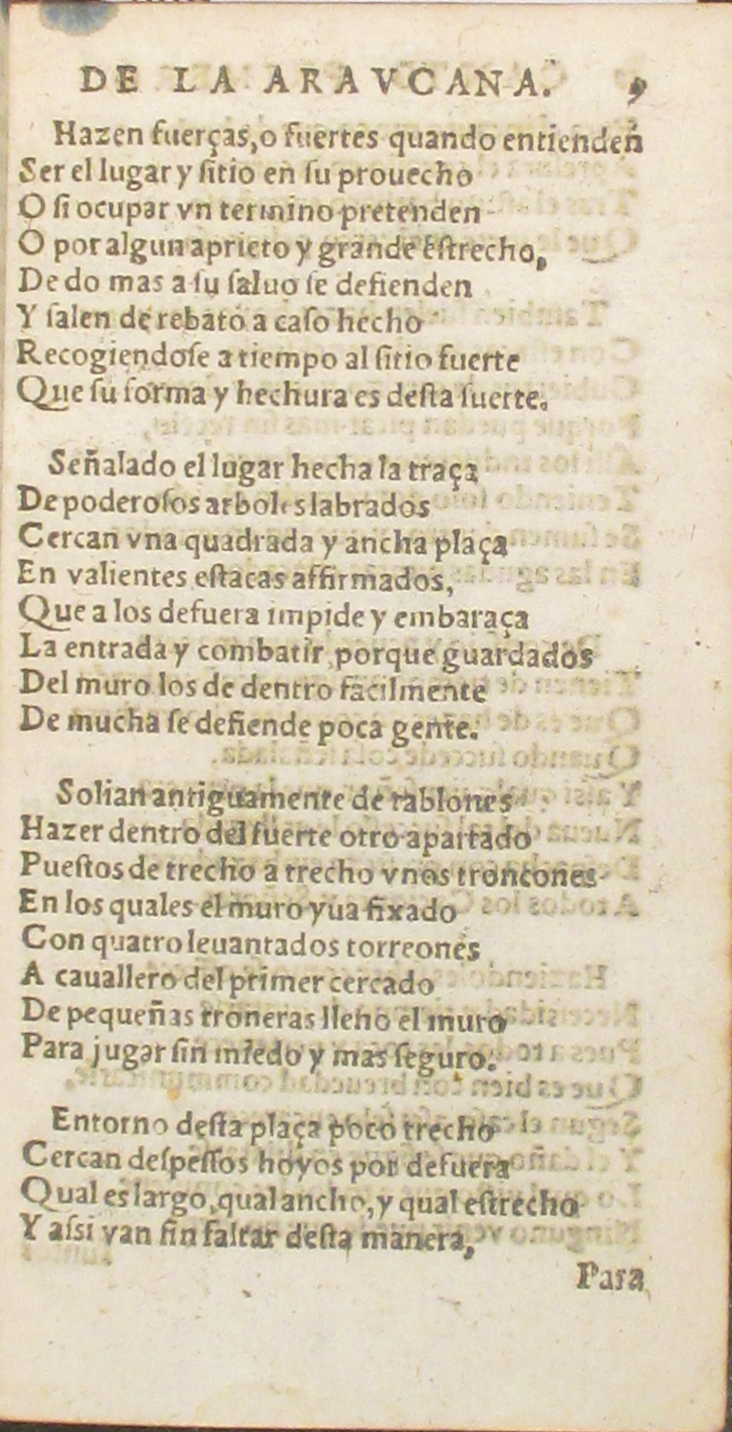 DE LA ARAVCANA. 9
Hazen fuerças, o fuertes quando entienden
Ser el lugar y ſitio en ſu prouecho
O ſi ocupar vn termino pretenden
O por algun aprieto y grande eſtrecho,
De do mas a ſu ſaluo ſe defienden
Y ſalen de rebato a caſo hecho
Recogiendoſe a tiempo al ſitio fuerte
Que ſu forma y hechura es deſta ſuerte.
Señalado el lugar hecha la traça
De poderoſos arboles labrados
Cercan vna quadrada y ancha plaça
En valientes eſtacas affirmados,
Que a los defuera impide y embaraça
La entrada y combatir porque guardados
Del muro los de dentro facilmente
De mucha ſe defiende poca gente.
Solian antiguamente de tablones
Hazer dentro del fuerte otro apartado
Pueſtos de trecho a trecho vnos troncones
En los quales el muro yua fixado
Con quatro leuantados torreones
A cauallero del primer cercado
De pequeñas troneras lleno el muro
Para jugar ſin miedo y mas ſeguro.
Entorno deſta plaça poco trecho
Cercan deſpeſſos hoyos por defuera
Qual es largo, qual ancho, y qual eſtrecho
Y aſsi van ſin faltar deſta manera,
Para